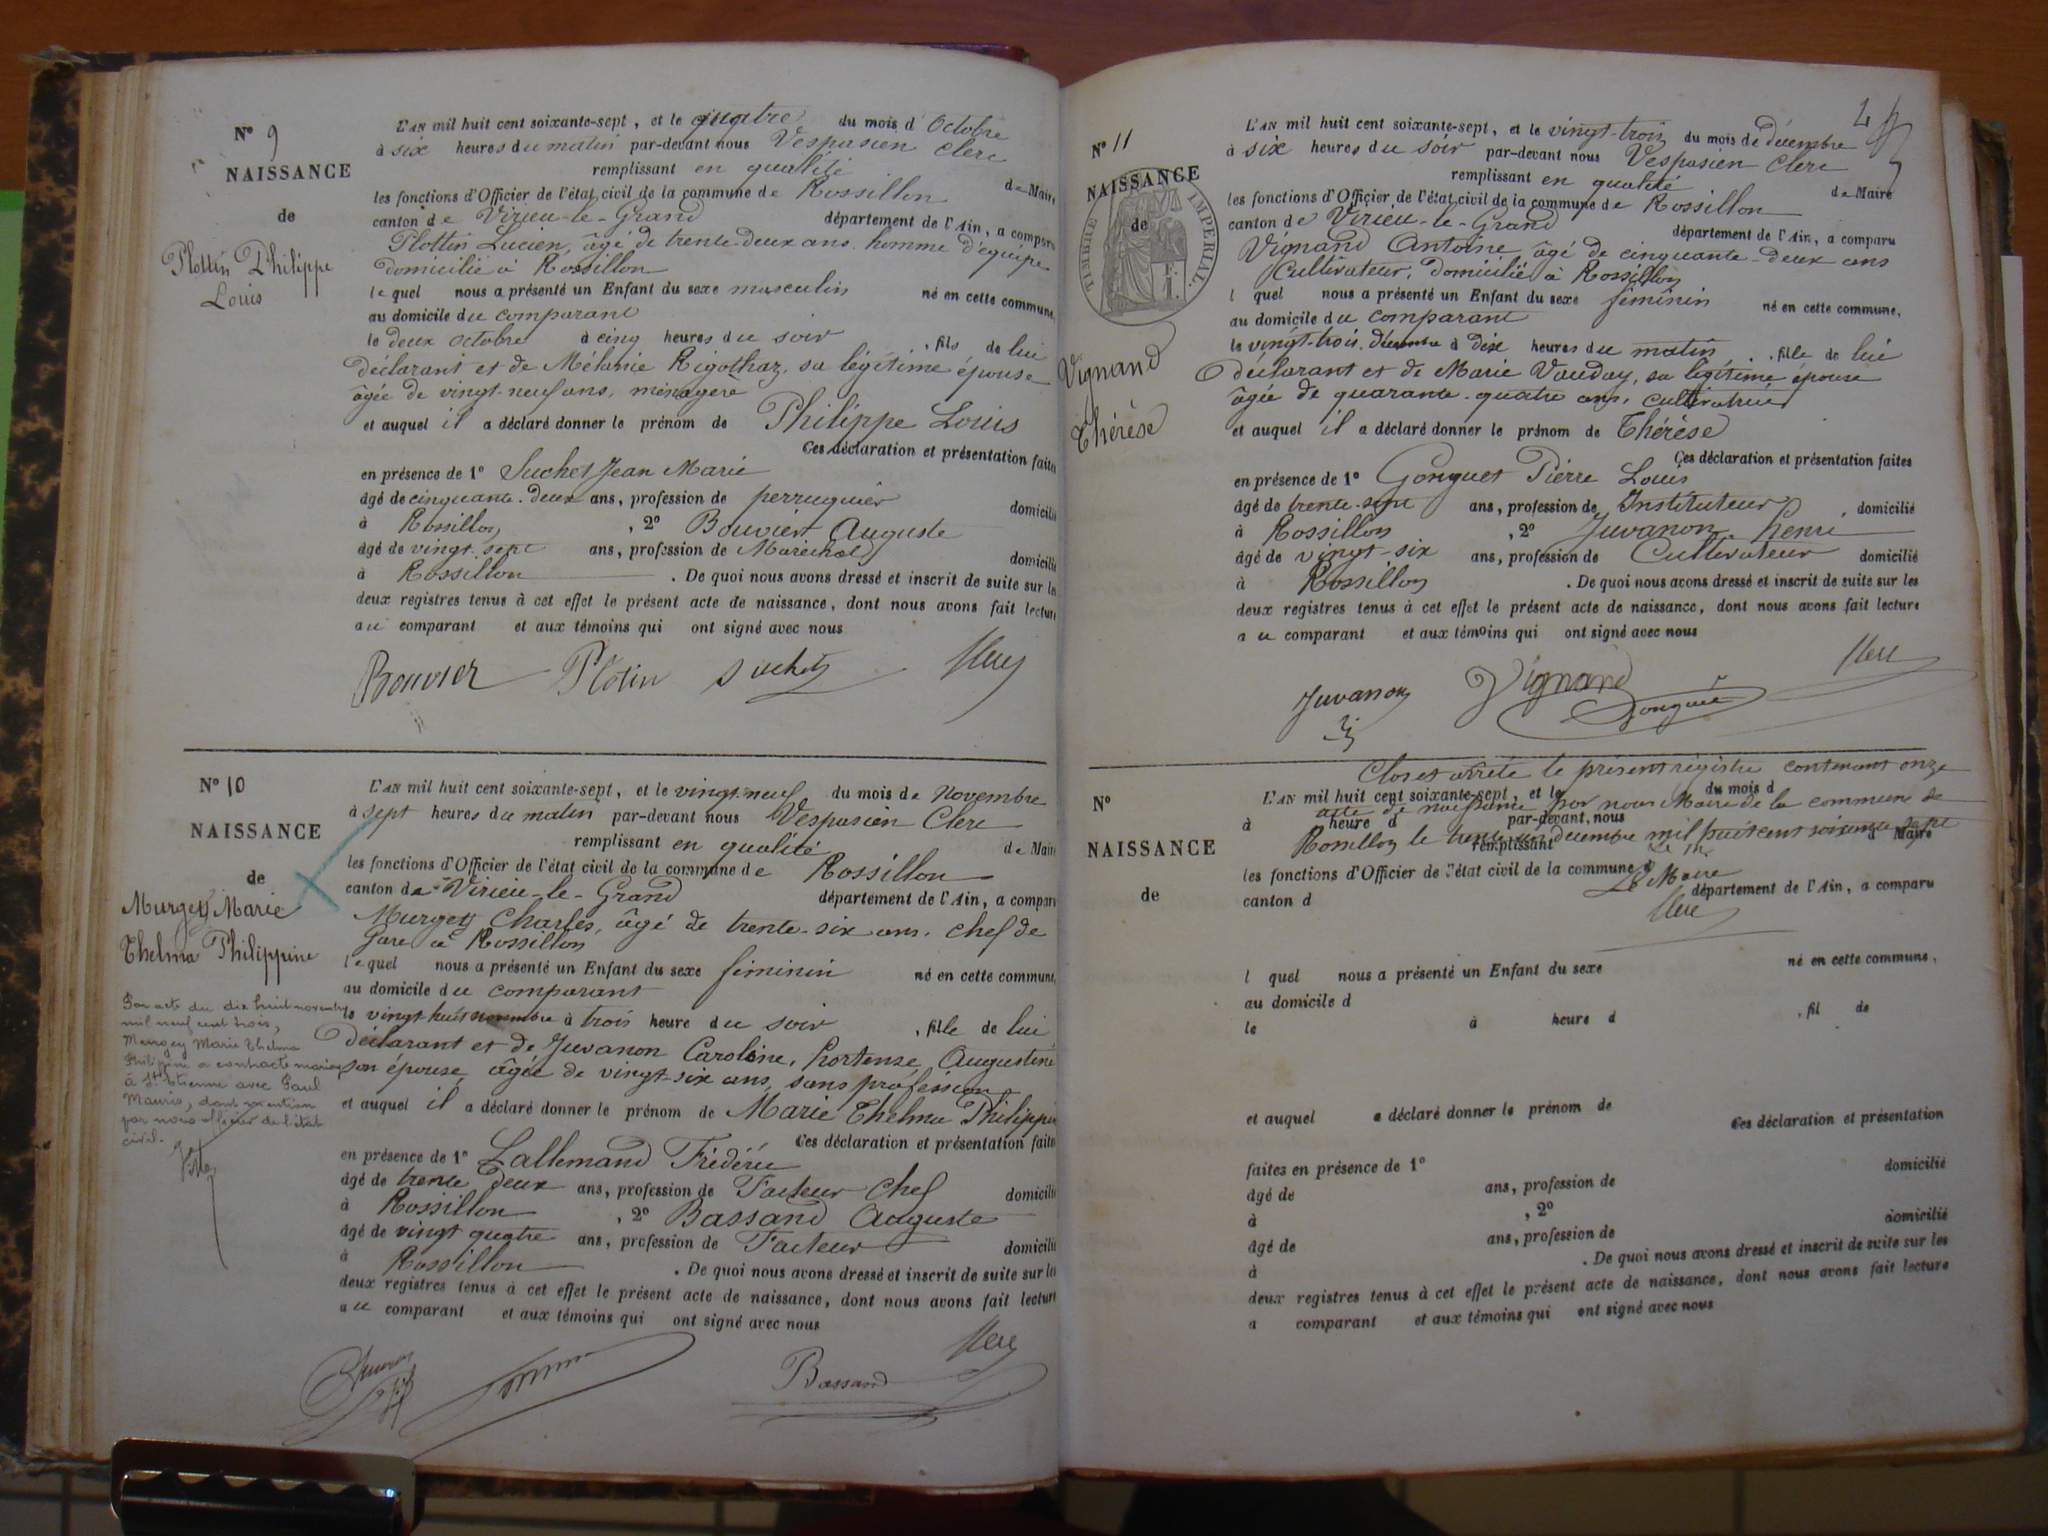 N° 9
NAISSANCE
de
Plottin Philippe
Louis
L'AN mil huit cent soixante-sept, et le quatre du mois d'Octobre
à six heures du matin par-devant nous Vespasien Clerc
remplissant en qualité de Maire
les fonctions d'Officier de l'état civil de la commune de Rossillon
canton de Virieu-le-Grand département de l'Ain, a comparu
Plottin Lucien, âgé de trente-deux ans, homme d'équipe
domicilié à Rossillon
lequel nous a présenté un Enfant du sexe masculin né en cette commune,
au domicile du comparant
le deux octobre à cinq heures du soir, fils de lui
déclarant et de Mélanie Rigothaz, sa légitime épouse
âgée de vingt-neuf ans, ménagère
et auquel il a déclaré donner le prénom de Philippe Louis
Ces déclaration et présentation faites
en présence de 1° Suchet Jean Marie
âgé de cinquante-deux ans, profession de perruquier domicilié
à Rossillon, 2° Bouvier Auguste
âgé de vingt-sept ans, profession de Maréchal domicilié
à Rossillon. De quoi nous avons dressé et inscrit de suite sur les
deux registres tenus à cet effet le présent acte de naissance, dont nous avons fait lecture
au comparant et aux témoins qui ont signé avec nous
Bouvier Plotin Suchet Clerc
N° 10
NAISSANCE
de
Murgey Marie
Thelma Philippine
Par acte du dix huit novembre
mil neuf cent trois,
Murgey Marie Thelma
Philippine a contracté mariage
à St Etienne avec Paul
Mauris, dont mention
par nous officier de l'état
civil.
L'AN mil huit cent soixante-sept, et le vingt-neuf du mois de Novembre
à sept heures du matin par-devant nous Vespasien Clerc
remplissant en qualité de Maire
les fonctions d'Officier de l'état civil de la commune de Rossillon
canton de Virieu-le-Grand département de l'Ain, a comparu
Murgey Charles, âgé de trente-six ans, chef de
Gare à Rossillon
lequel nous a présenté un Enfant du sexe féminin né en cette commune,
au domicile du comparant
le vingt huit novembre à trois heure du soir, fille de lui
déclarant et de Juvanon Caroline, Hortense, Augustine
son épouse, âgée de vingt-six ans, sans profession
et auquel il a déclaré donner le prénom de Marie Thelma Philippi
Ces déclaration et présentation faites
en présence de 1° Lallemand Frédéric
âgé de trente deux ans, profession de Facteur Chef domicilié
à Rossillon, 2° Bassand Auguste
âgé de vingt quatre ans, profession de Facteur domicilié
à Rossillon. De quoi nous avons dressé et inscrit de suite sur les
deux registres tenus à cet effet le présent acte de naissance, dont nous avons fait lecture
au comparant et aux témoins qui ont signé avec nous
Bassand Clerc
N° 11
NAISSANCE
de
TIMBRE IMPERIAL
Vignand
Thérèse
L'AN mil huit cent soixante-sept, et le vingt-trois du mois de décembre
à six heures du soir par-devant nous Vespasien Clerc
remplissant en qualité de Maire
les fonctions d'Officier de l'état civil de la commune de Rossillon
canton de Virieu-le-Grand département de l'Ain, a comparu
Vignand Antoine âgé de cinquante-deux ans
Cultivateur, domicilié à Rossillon
l quel nous a présenté un Enfant du sexe féminin né en cette commune,
au domicile du comparant
le vingt-trois décembre à dix heures du matin, fille de lui
déclarant et de Marie Vauday, sa légitime épouse
âgée de quarante-quatre ans, cultivatrice
et auquel il a déclaré donner le prénom de Thérèse
Ces déclaration et présentation faites
en présence de 1° Gonguet Pierre Louis
âgé de trente-sept ans, profession de Instituteur domicilié
à Rossillon, 2° Juvanon Henri
âgé de vingt-six ans, profession de Cultivateur domicilié
à Rossillon. De quoi nous avons dressé et inscrit de suite sur les
deux registres tenus à cet effet le présent acte de naissance, dont nous avons fait lecture
au comparant et aux témoins qui ont signé avec nous
Juvanon Vignand Gonguet Clerc
Clos et arrêté le présent régistre contenant onze
acte de naissance par nous Maire de la commune de
Rossillon le trente un décembre mil huit cent soixante sept
Le Maire
Clerc
N°
NAISSANCE
de
L'AN mil huit cent soixante-sept, et le du mois d
à heure d par-devant nous
remplissant d Maire
les fonctions d'Officier de l'état civil de la commune d
canton d département de l'Ain, a comparu
l quel nous a présenté un Enfant du sexe né en cette commune,
au domicile d
le à heure d, fil de
et auquel a déclaré donner le prénom de
Ces déclaration et présentation
faites en présence de 1° domicilié
âgé de ans, profession de
à, 2° domicilié
âgé de ans, profession de
à. De quoi nous avons dressé et inscrit de suite sur les
deux registres tenus à cet effet le présent acte de naissance, dont nous avons fait lecture
a comparant et aux témoins qui ont signé avec nous